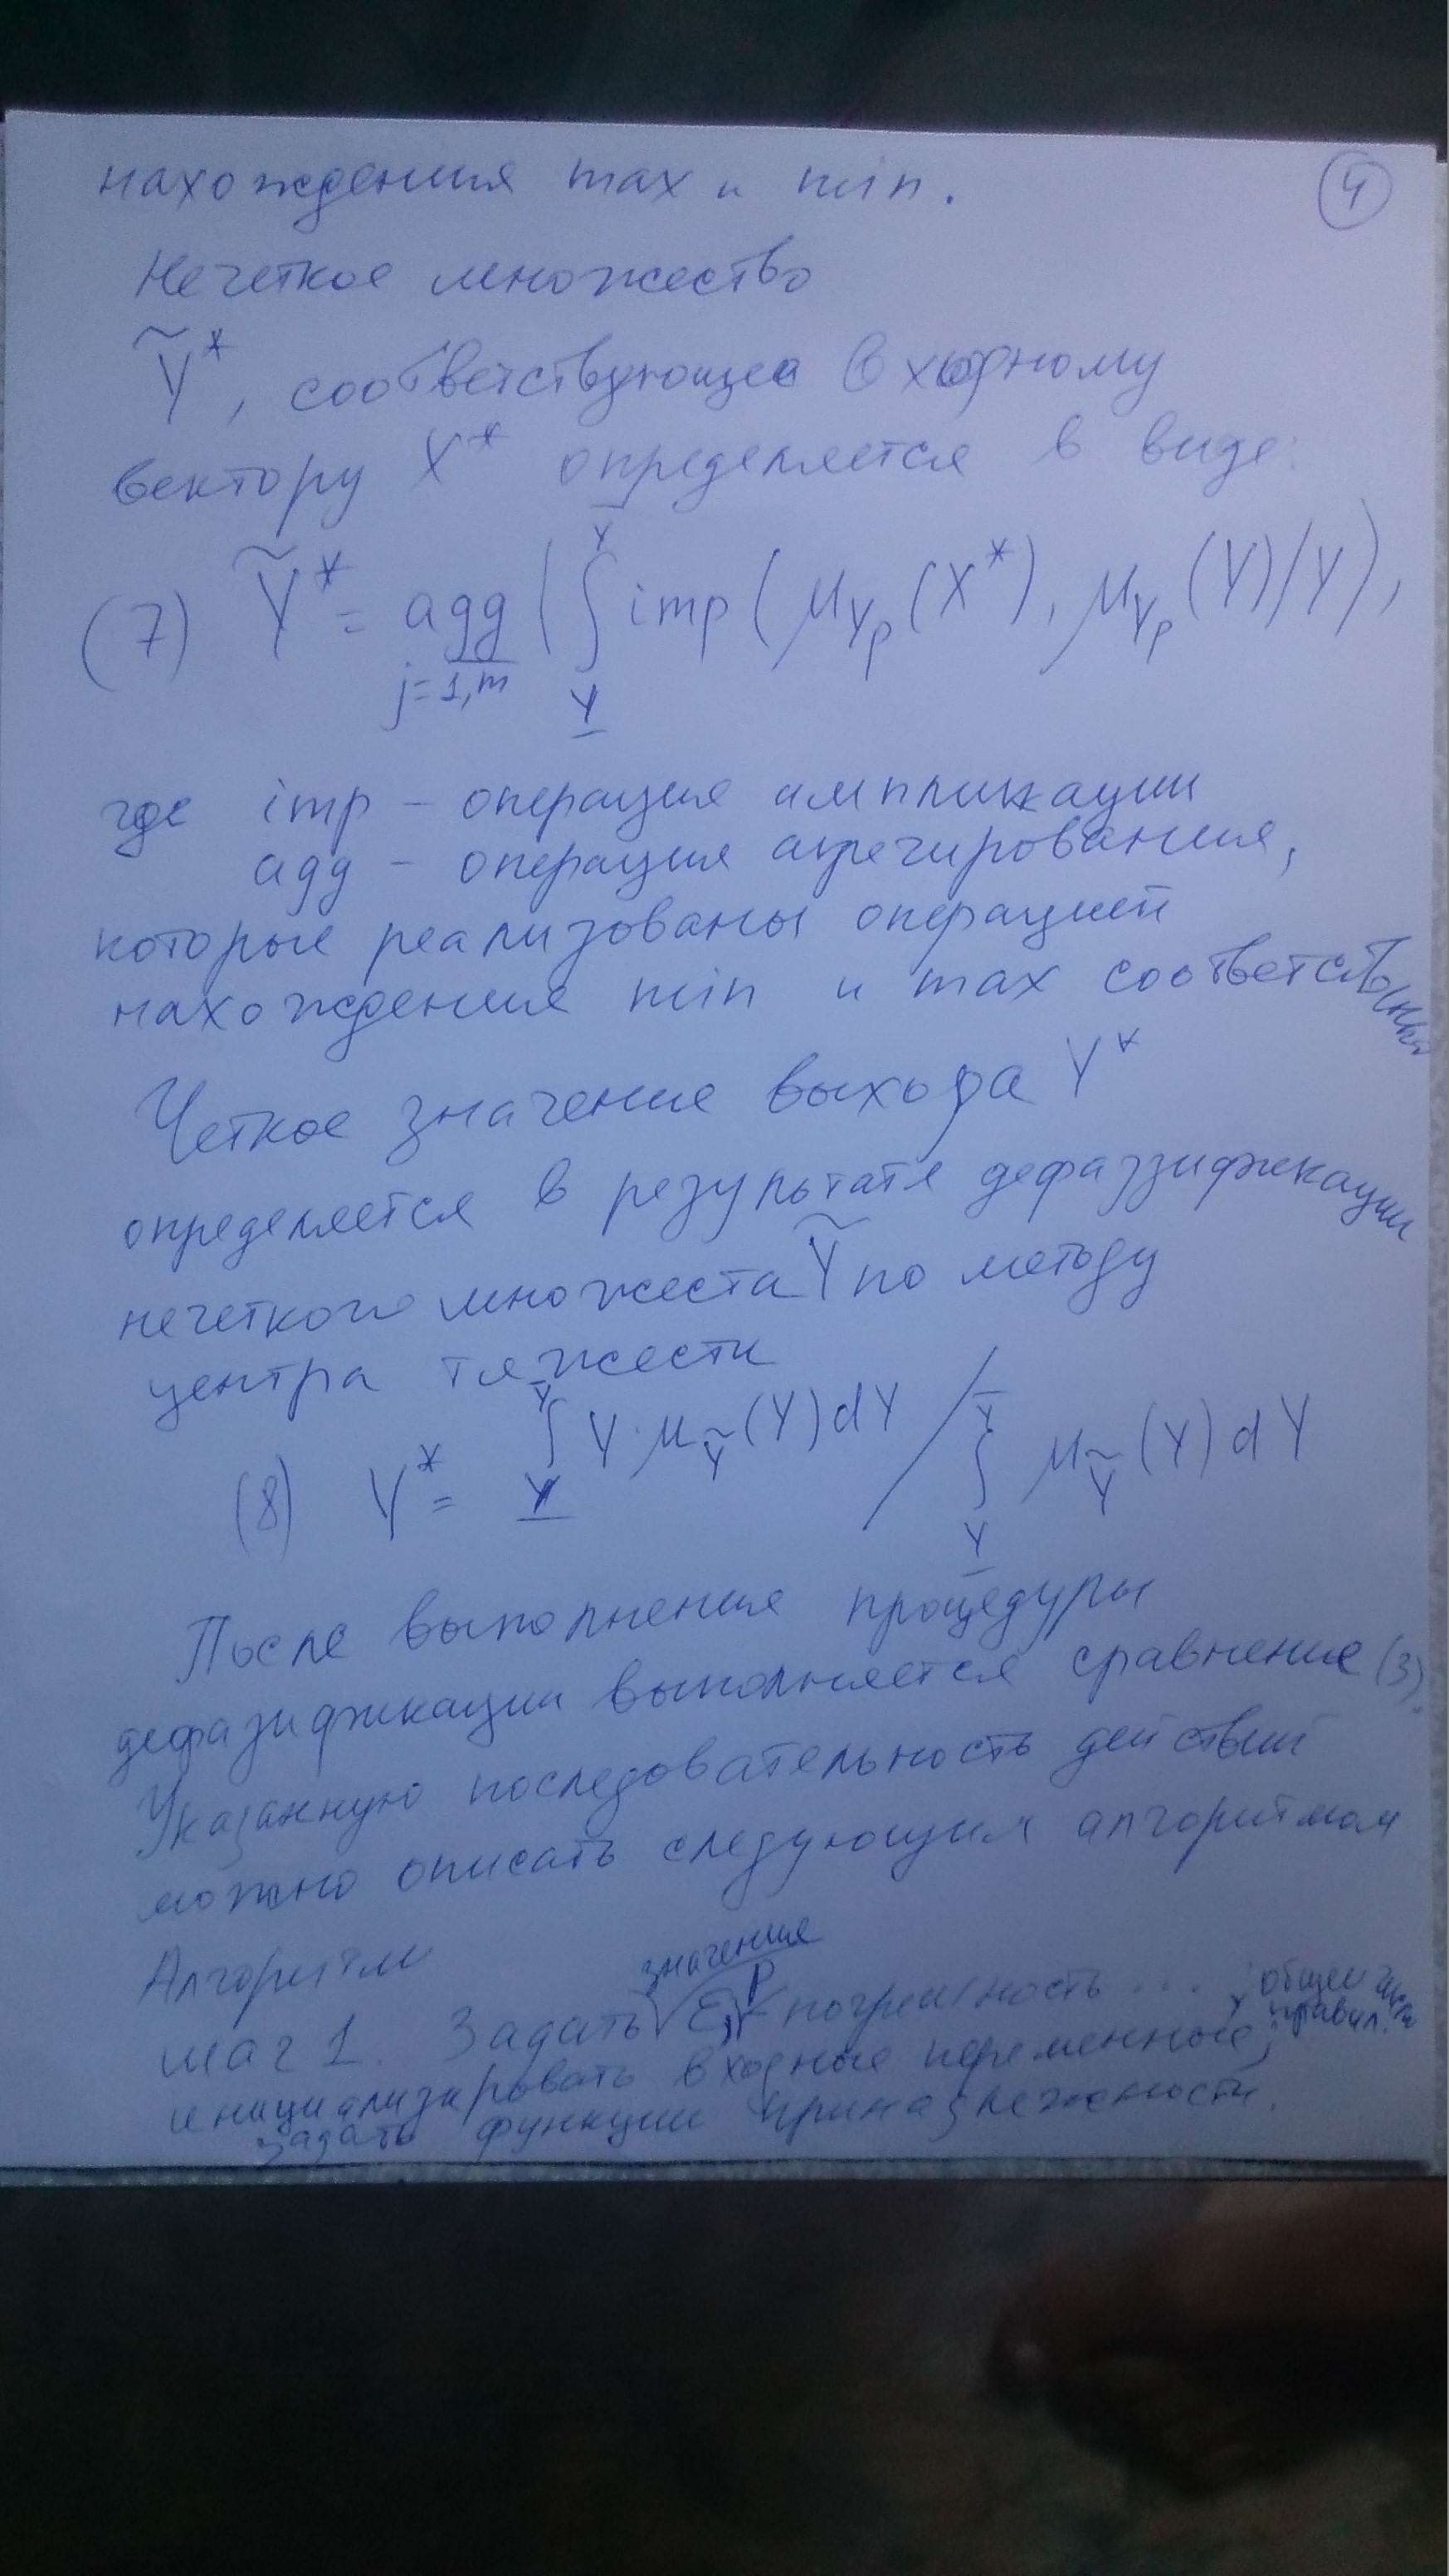 нахождения max и min.
4
Нечеткое множество
Ỹ*, соответствующее входному
вектору X* определяется в виде:
(7) Ỹ* = agg j=1,m (∫ imp (μ_Yp (X*), μ_Yp (Y)/Y),
где imp – операция импликации
agg – операция агрегирования,
которые реализованы операцией
нахождения min и max соответственно
Четкое значение выхода Y*
определяется в результате дефаззификации
нечеткого множеста Ỹ по методу
центра тяжести
(8) Y* = ∫ Y·μ_Ỹ (Y) dY / ∫ μ_Ỹ (Y) dY
После выполнения процедуры
дефазификации выполняется сравнение (3).
Указанную последовательность действий
можно описать следующим алгоритмом
Алгоритм
значение
шаг 1. Задать погрешность ... , общее число правил.
инициализировать входные переменные;
задать функции принадлежности.